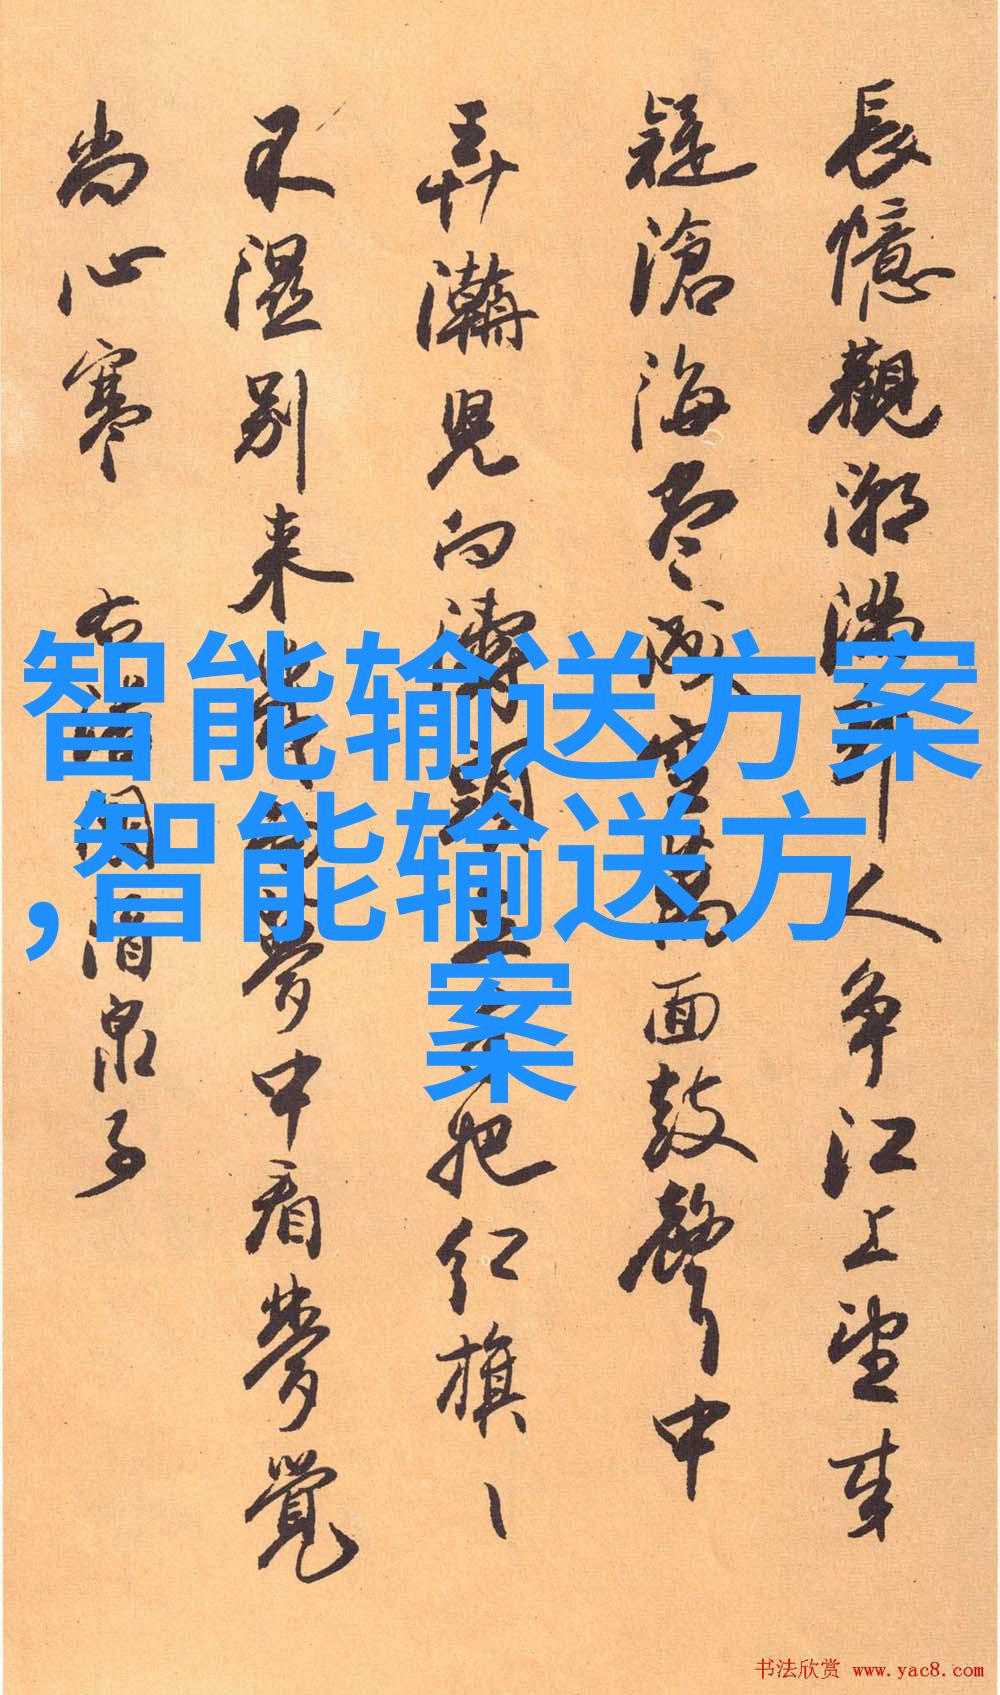 長憶觀潮滿郭人爭江上望来
疑滄海盡成空萬面鼓聲中
弄潮児向濤頭立手把红旗〻
不湿别来幾向夢中看夢覺
尚心寒 右潘閬酒泉子
智能输送方案
,智能输送方
案
书法欣赏 www.yac8.com